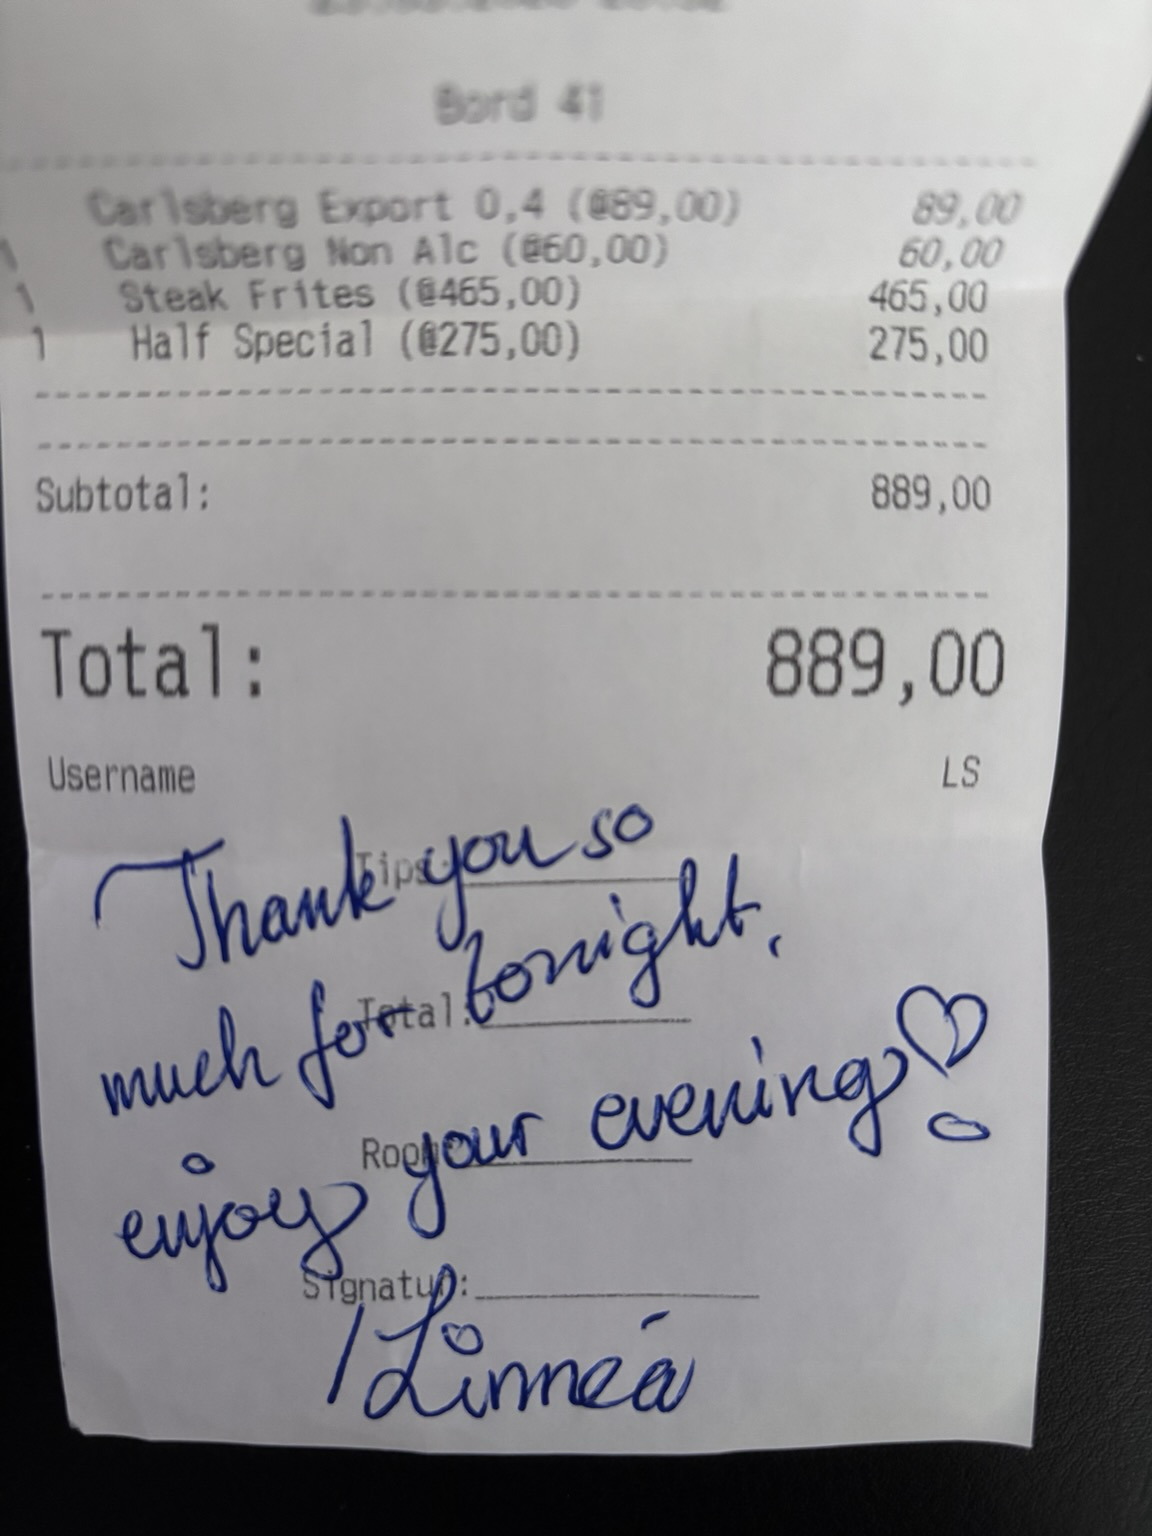 Bord 41
Carlsberg Export 0,4 (@89,00) 89,00
1 Carlsberg Non Alc (@60,00) 60,00
1 Steak Frites (@465,00) 465,00
1 Half Special (@275,00) 275,00
Subtotal: 889,00
Total: 889,00
Username LS
Tips:
Thank you so
Total:
much for tonight,
Room:
enjoy your evening
Signatur:
/Linnéa